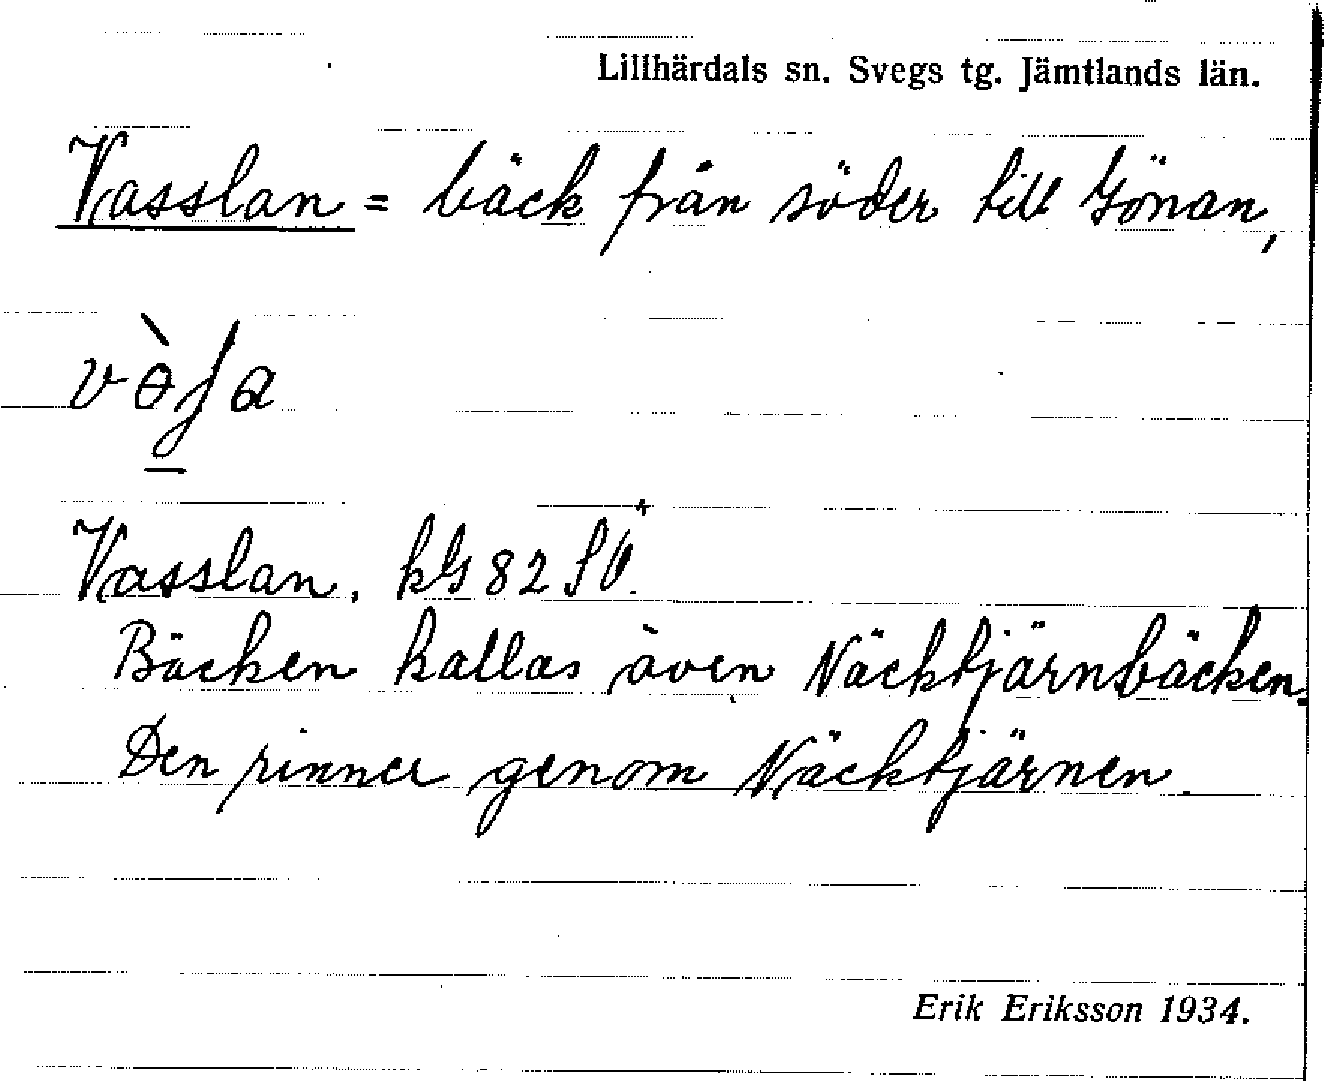 Lillhärdals sn. Svegs tg. Jämtlands län.
Vasslan = bäck från söder till Gönan,
Vasslan. kG 82 SV.
Bäcken kallas även Näcktjärnbäcken.
Den rinner genom Näcktjärnen.
Erik Eriksson 1934.